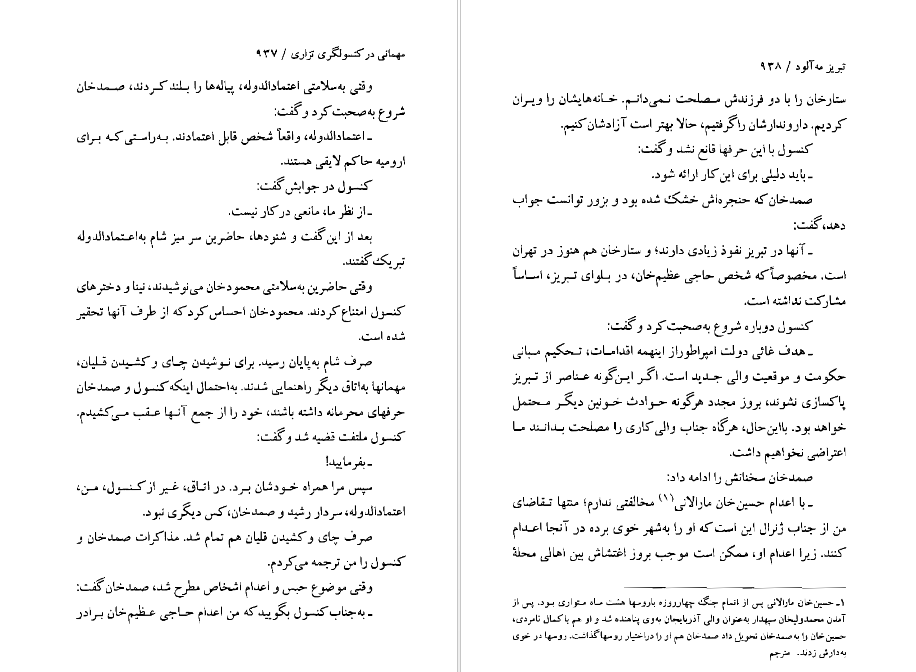 مهمانی در کنسولگری تزاری / ۹۳۷
وقتی به‌سلامتی اعتمادالدوله، پیاله‌ها را بلند کردند، صمدخان
شروع به‌صحبت کرد و گفت:
ـ اعتمادالدوله، واقعاً شخص قابل اعتمادند. به‌راستی که برای
ارومیه حاکم لایقی هستند.
کنسول در جوابش گفت:
ـ از نظر ما، مانعی در کار نیست.
بعد از این گفت و شنودها، حاضرین سر میز شام به‌اعتمادالدوله
تبریک گفتند.
وقتی حاضرین به‌سلامتی محمودخان می‌نوشیدند، نینا و دخترهای
کنسول امتناع کردند. محمودخان احساس کرد که از طرف آنها تحقیر
شده است.
صرف شام به‌پایان رسید. برای نوشیدن چای و کشیدن قلیان،
مهمانها به‌اتاق دیگر راهنمایی شدند. به‌احتمال اینکه کنسول و صمدخان
حرفهای محرمانه داشته باشند، خود را از جمع آنها عقب می‌کشیدم.
کنسول ملتفت قضیه شد و گفت:
ـ بفرمایید!
سپس مرا همراه خودشان برد. در اتاق، غیر از کنسول، من،
اعتمادالدوله، سردار رشید و صمدخان، کس دیگری نبود.
صرف چای و کشیدن قلیان هم تمام شد. مذاکرات صمدخان و
کنسول را من ترجمه می‌کردم.
وقتی موضوع حبس و اعدام اشخاص مطرح شد، صمدخان گفت:
ـ به‌جناب کنسول بگویید که من اعدام حاجی عظیم‌خان برادر
تبریز مه‌آلود / ۹۳۸
ستارخان را با دو فرزندش مصلحت نمی‌دانم. خانه‌هایشان را ویران
کردیم، داروندارشان را گرفتیم، حالا بهتر است آزادشان کنیم.
کنسول با این حرفها قانع نشد و گفت:
ـ باید دلیلی برای این کار ارائه شود.
صمدخان که حنجره‌اش خشک شده بود و بزور توانست جواب
دهد، گفت:
ـ آنها در تبریز نفوذ زیادی دارند؛ و ستارخان هم هنوز در تهران
است. مخصوصاً که شخص حاجی عظیم‌خان، در بلوای تبریز، اساساً
مشارکت نداشته است.
کنسول دوباره شروع به‌صحبت کرد و گفت:
ـ هدف غائی دولت امپراطور از اینهمه اقدامات، تحکیم مبانی
حکومت و موقعیت والی جدید است. اگر این‌گونه عناصر از تبریز
پاکسازی نشوند، بروز مجدد هرگونه حوادث خونین دیگر محتمل
خواهد بود. بااین‌حال، هرگاه جناب والی کاری را مصلحت بدانند ما
اعتراضی نخواهیم داشت.
صمدخان سخنانش را ادامه داد:
ـ با اعدام حسین‌خان مارالانی(۱) مخالفتی ندارم؛ منتها تقاضای
من از جناب ژنرال این است که او را به‌شهر خوی برده در آنجا اعدام
کنند. زیرا اعدام او، ممکن است موجب بروز اغتشاش بین اهالی محلهٔ
۱ـ حسین‌خان مارالانی پس از اتمام جنگ چهارروزه باروسها هشت ماه متواری بود. پس از
آمدن محمدولیخان سپهدار به‌عنوان والی آذربایجان به‌وی پناهنده شد و او هم با کمال نامردی،
حسین‌خان را به‌صمدخان تحویل داد صمدخان هم او را دراختیار روسها گذاشت. روسها در خوی
به‌دارش زدند. مترجم